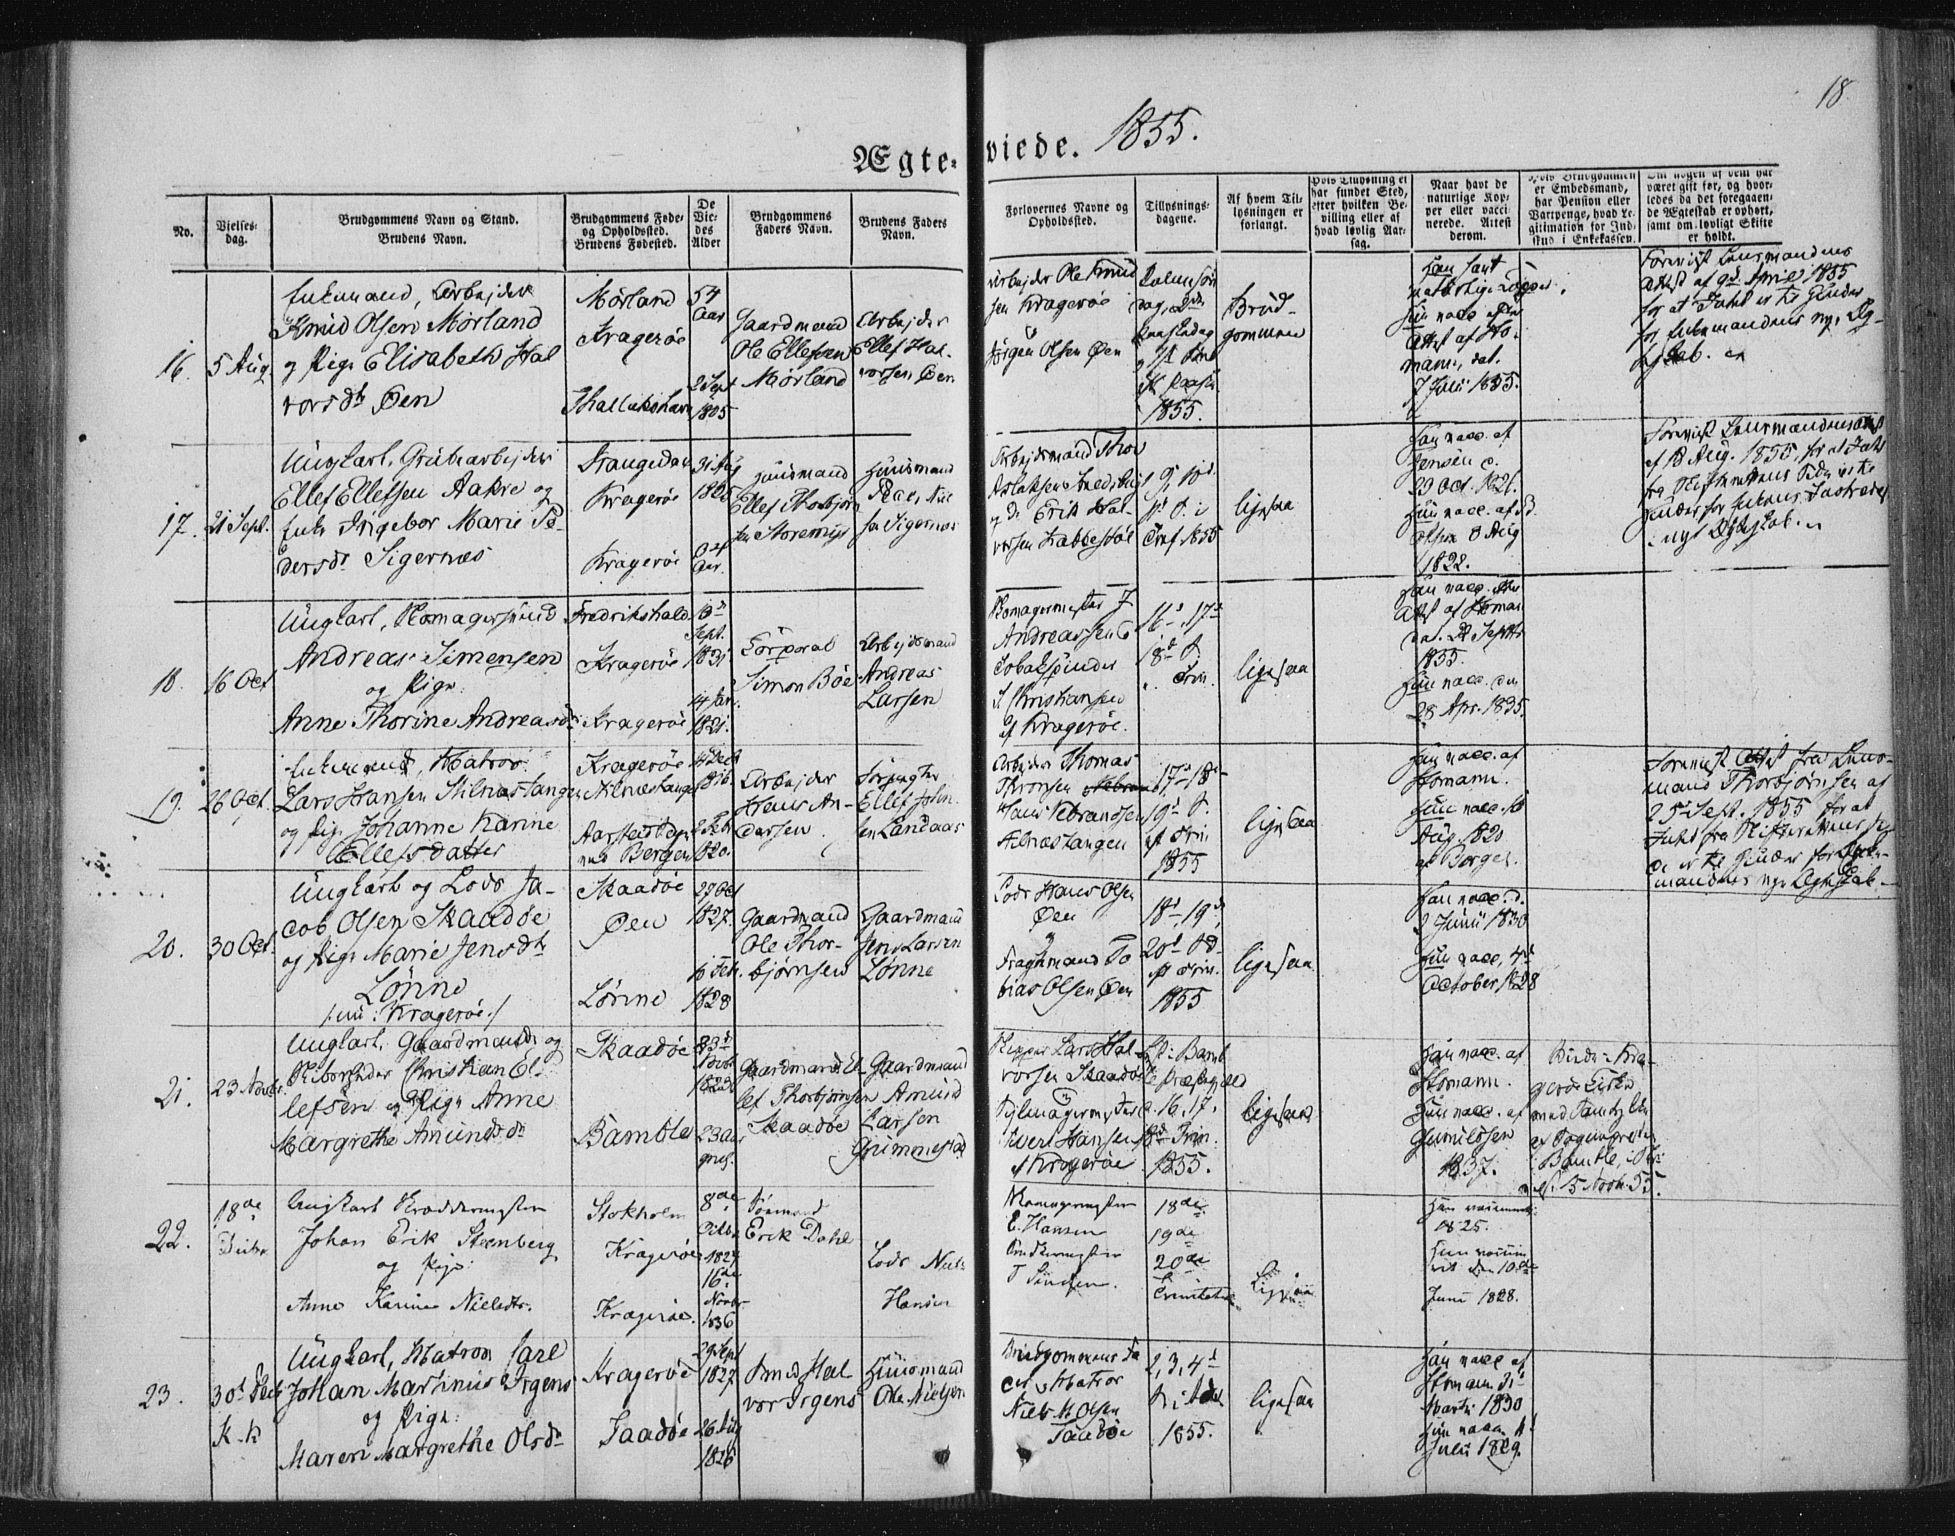 18
Ægte-viede. 1855.
No.
Vielses-
dag.
Brudgommens Navn og Stand.
Brudens Navn.
Brudgommens Føde-
og Opholdssted.
Brudens Fødested.
De
Vie-
des
Alder
Brudgommens
Faders Navn.
Brudens Faders
Navn.
Forlovernes Navne og
Opholdssted.
Tillysnings-
dagene.
Af hvem Til-
lysningen er
forlangt.
Hvis Tillysning ei
har fundet Sted,
efter hvilken Be-
villing eller af
hvad lovlig Aar-
sag.
Naar havt de
naturlige Kop-
per eller vacci-
nerede. Attest
derom.
Hvis Brudgommen
er Embedsmand,
har Pension eller
Vartpenge, hvad Le-
gitimation for Ind-
skud i Enkekassen.
Om nogen af dem har
været gift før, og hvor-
ledes da det foregaaen-
de Ægteskab er ophørt,
samt om lovligt Skifte
er holdt.
16.
5 Aug.
Enkemand, Arbejder
Knud Olsen Mørland
og Pige Elisabeth Hal
vorsdtr Øen
Mørland
Kragerøe
54
Aar
2 Sept
1805
Gaardmand
Ole Ellefsen
Mørland
Arbejder
Ellef Hal-
vorsen Øen
Arbejder Ole Knud
sen Kragerøe
Jørgen Olsen Øen
1855.
Brud-
gommen
Han havt
naturlige Kopper.
Hun vacc. efter
Attest af Ho-
mann, dat.
7 Juli 1855.
Foreviist Lensmandens
Attest af 9de April 1855
for at Intet er til Hinder
for Enkemandens nye Æg-
teskab.
17.
21 Sept.
Ungkarl, Grubearbejder
Ellef Ellefsen Aakre og
Enke Ingebor Marie Pe-
dersdr Sigernæs
Drangedal
Kragerøe
Kragerøe
31 Aug
1825
Aar.
Huusmand
Ellef Thorbjørn
sen Storemyr
Huusmand
Peder Niel
sen Sigernæs
Arbejdsmand Thov
Aslaksen
og do Erik Hal-
vorsen Labbesdal
9, 10d
Trinf. 1855
ligesaa
Han vacc. af
Jensen d.
29 Oct. 1826.
Hun vacc. af
Olsen 8 Aug
1822.
Foreviist Lensmandens Attest
af 18 Aug. 1855, for at Intet
fra Skifterettens Side er til
Hinder for Enkens Indtrædelse
i nyt Ægteskab.
18.
16 Oct
Ungkarl, Skomagersvend
Andreas Simensen
og Pige:
Anne Thorine Andreasdr
Fredrikshald
Kragerøe
Kragerøe
10d
Sept.
1831
14 Jan.
1821.
Corporal
Simon Bøe
Arbejdsmand
Andreas
Larsen
Skomagermester J.
Andreassen &
Tobakspinder
S. Kristiansen
af Kragerøe.
16- 17de
18d S.
e. Trin.
ligesaa
Han vacc. efter
Attest af Homan
dat. 22 Septbr
1855.
Hun vacc. den
28 Apr. 1835.
19.
26 Oct.
Enkemand, Matros
Lars Hansen Stilnæstangen
og Pige Johanne Karine
Ellefsdatter
Kragerøe
Stilnæstangen
Bergen
14 Dec
1816.
1820.
Arbejder
Hans An-
dersen.
Forpagter
Ellef John-
sen Landaas
Arbejder Thomas
Thronsen
Hans Vebrandsen
Stilnæstangen
17d- 18d-
19d S.
ef Trin.
1855
ligesaa
Han vacc. af
Homann.
Hun vacc. 16
Aug. 1820
Foreviist Attest fra Lens-
mand Thorbjørnsen af
25d Sept. 1855 for at
Intet fra Skifterettens Si-
de er til Hinder for Enke-
mandens nye Ægteskab.
20.
30 Oct.
Ungkarl og Lods Ja-
cob Olsen Skaadøe
og Pige Marie Jensdtr
Lønne
/: nu: Kragerøe :/
Skaadøe
Øen
Lønne
20 Oct
1827.
16 Feb.
1828
Gaardmand
Ole Thor-
bjørnsen
Gaardmand
Jens Larsen
Lønne
Lods Hans Olsen
Øen
Fragtmand To
bias Olsen Øen
18d- 19d,
20d Sd.
ef Trin.
1855
ligesaa
Han vacc. d.
2 Junii 1830
Hun vacc. 4d
October 1828
21.
23 Novbr.
Ungkarl, Gaardmand og
Skibsreder Christian El-
lefsen og Pige Anne
Margrethe Amundsdr
Skaadøe
Bamble
23d
Novbr
23 Aar
Gaardmand El-
lef Thorbjørnsen
Skaadøe
Gaardmand
Amund
Larsen
Grummestad
Skipper Lars Hal-
vorsen Skaadøe
Sejlmagermester
Sivert Hansen
Kragerøe
i Bamb
le Præstegjeld
16. 17.
18d Trin.
1855.
ligesaa
Han vacc. af
Homann.
Hun vacc. af
Gundersen
1837.
Viede i Kra-
gerøe Kirke
med Samtykke
af Sognepræsten
i Bamble, i Skri-
velse 5 Novbr. 55.
22.
18de
Decbr.
Ungkarl Skreddermester
Johan Erik Steenberg
og Pige:
Anne Karine Nielsdtr.
Stokholm
Kragerøe
Kragerøe.
8de
Octbr
1827
16de
Novbr
1836
Sømand
Erik Dahl
Lods Niels
Hansen
Skomagermester
E. Hansen
Snedkermester
T. Simonsen.
18de
19de
20de
Trinitatis
Ligesaa
Han vaccineret
1825.
Hun vaccine-
ret den 10de
Juni 1828.
23.
30d Decbr
K.k
Ungkarl, Matros Carl
Johan Martinus Irgens
og Pige:
Maren Margrethe Olsdr
Kragerøe
Saadøe
29 Sept
1827
26 Aug
1826
Smed Hal
vor Irgens
Huusmand
Ole Nielsen
Brudgommens Fa
der, Matros
Niels M. Olsen
Saadøe
2, 3, 4d
S. i Adv
1855.
ligesaa
Han vacc af
Homann 31d
Marts 1830
Hun vacc.
Juli 1829.